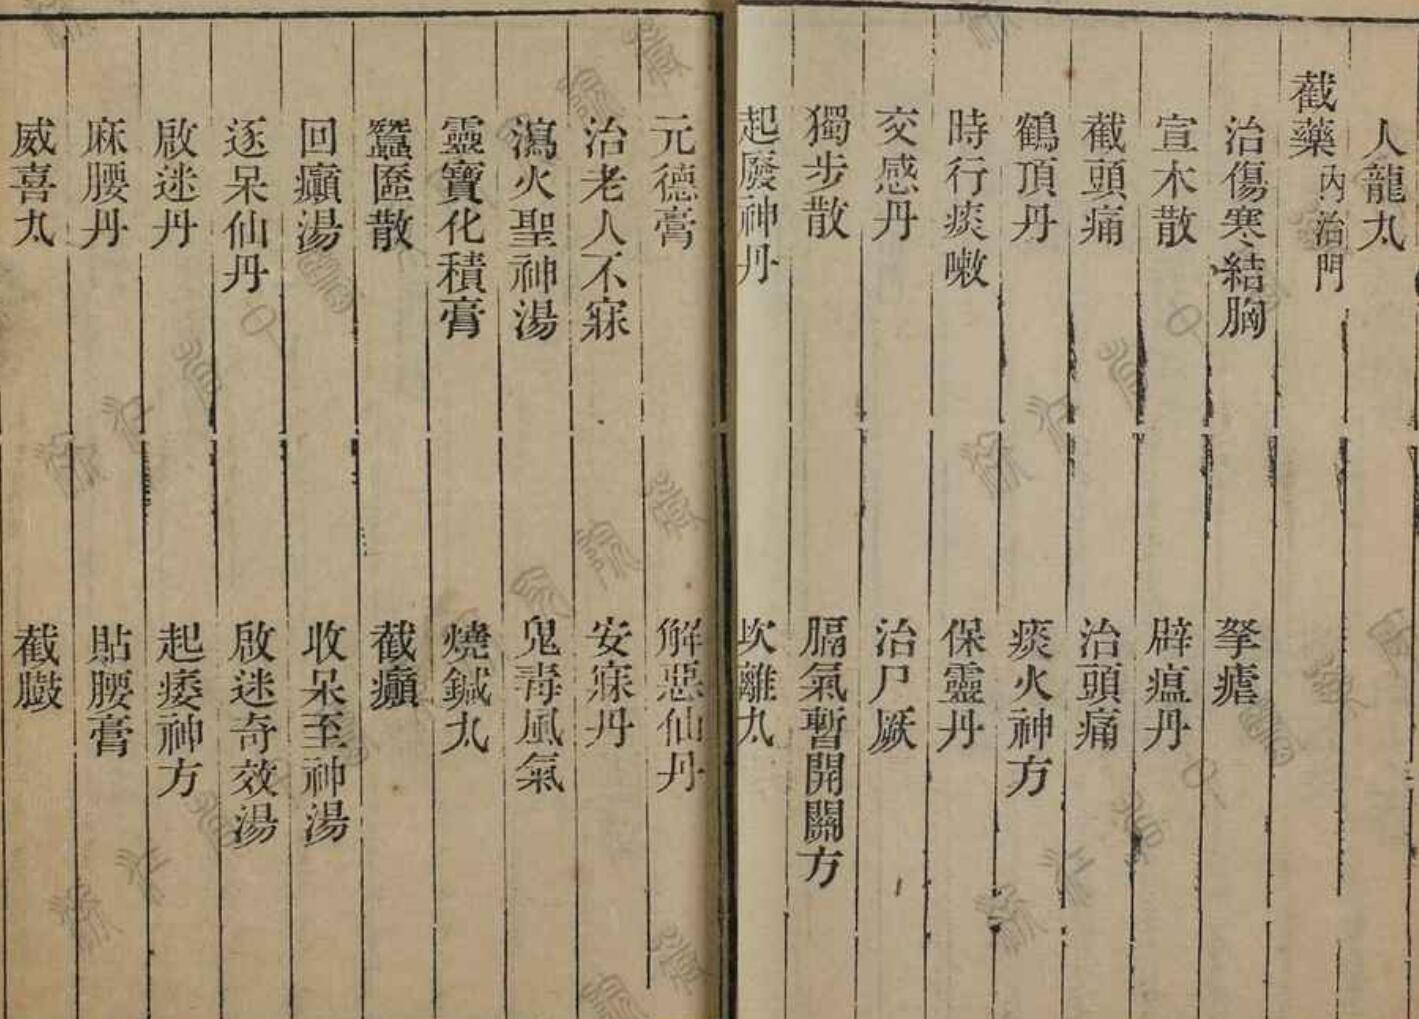 人龍丸
截藥 內治門
治傷寒結胸 瘧
宣木散 辟瘟丹
截頭痛 治頭痛
鶴頂丹 痰火神方
時行痰嗽 保靈丹
交感丹 治尸厥
獨步散 膈氣暫開關方
起廢神丹 坎離丸
元德膏 解惡仙丹
治老人不寐 安寐丹
瀉火聖神湯 鬼毒風氣
靈寶化積膏 燒鍼丸
散 截癲
回癲湯 收呆至神湯
逐呆仙丹 啟迷奇效湯
啟迷丹 起痿神方
麻腰丹 貼腰膏
威喜丸 截臌